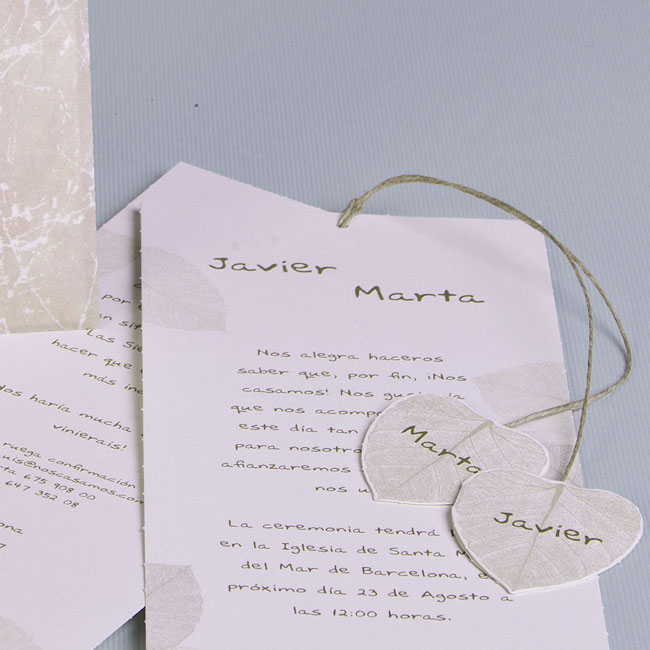 Javier
Marta
Nos alegra haceros
saber que, por fin, ¡Nos
casamos! Nos
que nos
este día tan
para nosotro
afianzaremos
nos
La ceremonia tendrá
en la Iglesia de Santa
del Mar de Barcelona,
próximo día 23 de Agosto a
las 12:00 horas.
Marta
Javier
por
Las
hacer que
más
haría mucha
vinierais!
ruega confirmación
uis@noscasamos.co
675 908 00
647 352 08